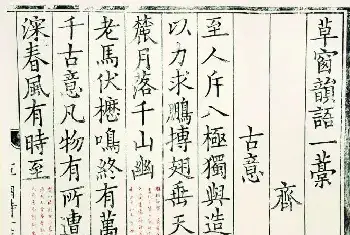 草窗韻語一稾
齊
古意
至人斥八極獨與造
以力求鵬搏翅垂天
麓月落千山幽
老馬伏櫪鳴終有萬
千古意凡物有所遭
深春風有時至